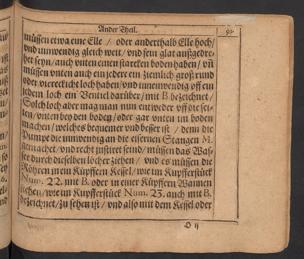 Ander Theil.
92
müssen etwa eine Elle / oder anderthalb Elle hoch/
und inwendig gleich weit / und fein glat außgedre-
het seyn/ auch unten einen starcken boden haben/ uñ
müssen unten auch ein jeder ein ziemlich groß rund
oder viereckicht loch haben/ und inwendig uff ein
jedem loch ein Ventiel darüber/ mit B bezeichnet/
Solch loch aber mag man nun entweder uff die sei-
ten/ unten bey den boden/ oder gar unten im boden
machen/ welches bequemer und besser ist / denn die
Pumpe die inwendig an die eisernen Stangen M.
gemachet/ und recht justiret seind/ müssen das Was-
ser durch dieselben löcher ziehen / und es müssen die
Röhren in ein Kupffern Kessel/ wie im Kupfferstück
Num. 22. mit B. oder in einer Küpffern Wannen
stehen/ wie im Kupfferstück Num. 23. auch mit B.
bezeichnet/ zu sehen ist/ und also mit dem Kessel oder
D ij